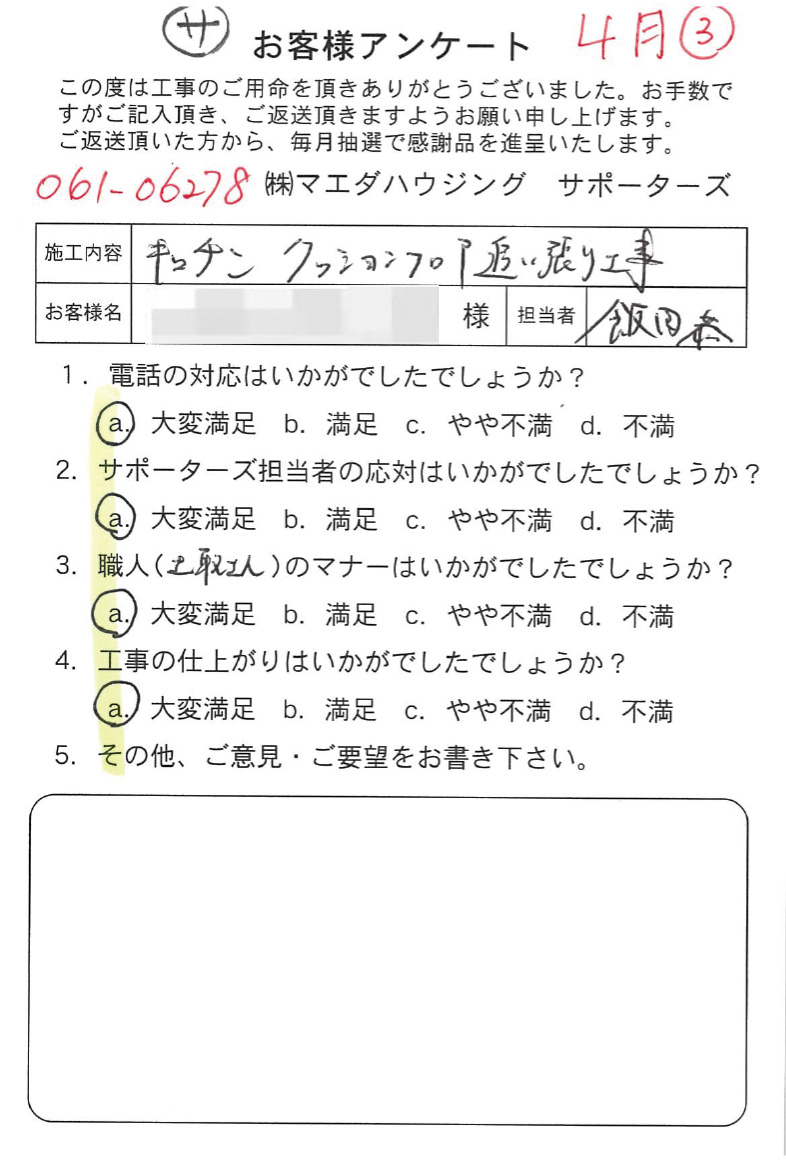 サ お客様アンケート 4月③
この度は工事のご用命を頂きありがとうございました。お手数で
すがご記入頂き、ご返送頂きますようお願い申し上げます。
ご返送頂いた方から、毎月抽選で感謝品を進呈いたします。
061-06278 ㈱マエダハウジング サポーターズ
施工内容 キッチン クッションフロア追い張り工事
お客様名 様 担当者 飯田
1. 電話の対応はいかがでしたでしょうか?
a. 大変満足 b. 満足 c. やや不満 d. 不満
2. サポーターズ担当者の応対はいかがでしたでしょうか?
a. 大変満足 b. 満足 c. やや不満 d. 不満
3. 職人( )のマナーはいかがでしたでしょうか?
a. 大変満足 b. 満足 c. やや不満 d. 不満
4. 工事の仕上がりはいかがでしたでしょうか?
a. 大変満足 b. 満足 c. やや不満 d. 不満
5. その他、ご意見・ご要望をお書き下さい。